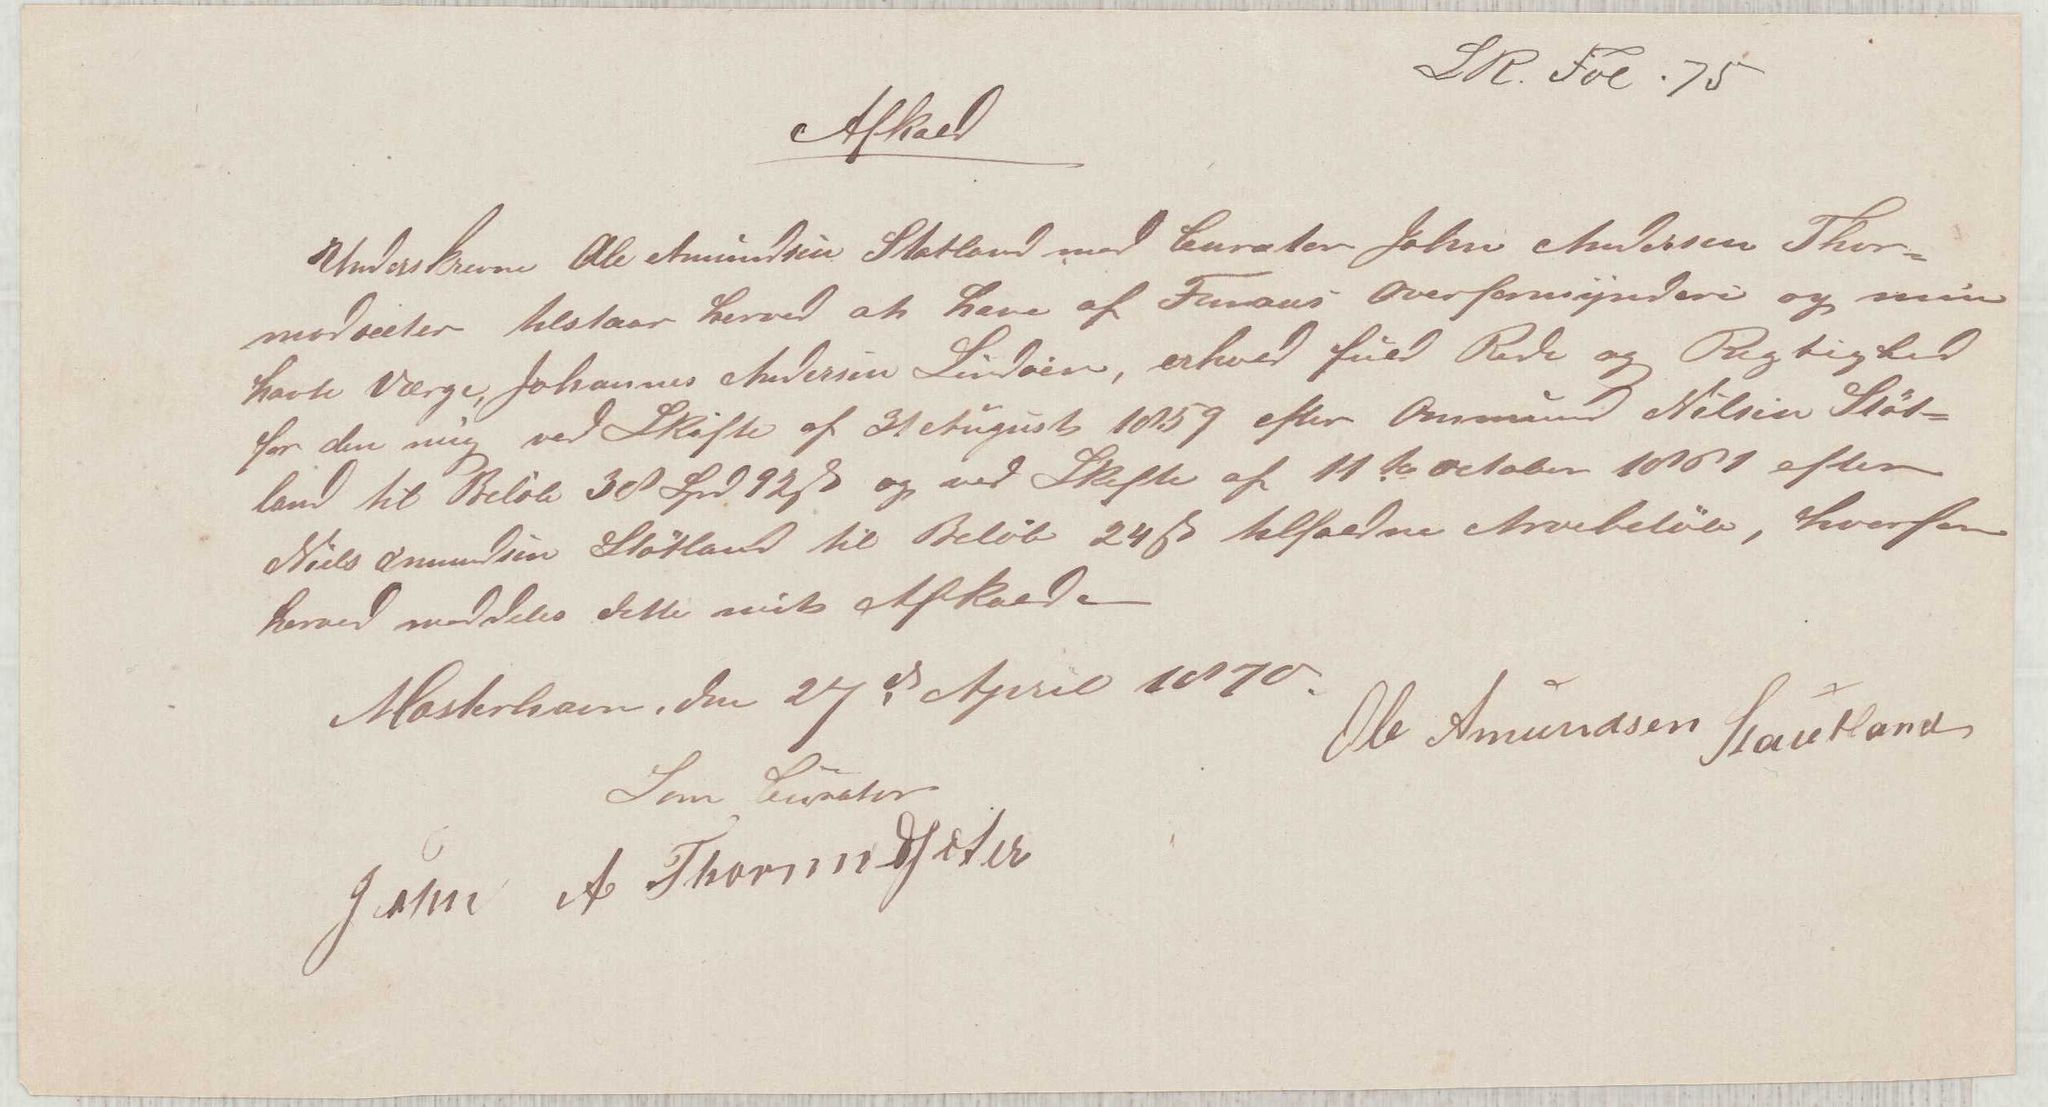 LR. Fol. 75
Afkald
Underskrevne Ole Amundsen Støtland med Curator John Andersen Thor=
modsæter tilstaar herved at have af Finaas Overformynderi og min
havte Værge, Johannes Andersen Lindøen, erholdt fuld Rede og Rigtighed
for den mig ved Skifte af 31 August 1859 efter Ommund Nilsen Støt=
land til Beløb 38 Spd 92 ß og ved Skifte af 11te October 1861 efter
Niels Omundsen Støtland til Beløb 24 ß tilfaldne Arvebeløb, hvorfor
herved meddeles dette mit Afkald.
Mosterhavn, den 27d April 1870.
Ole Amundsen Stautland
Som Curator
John A Thormodsæter